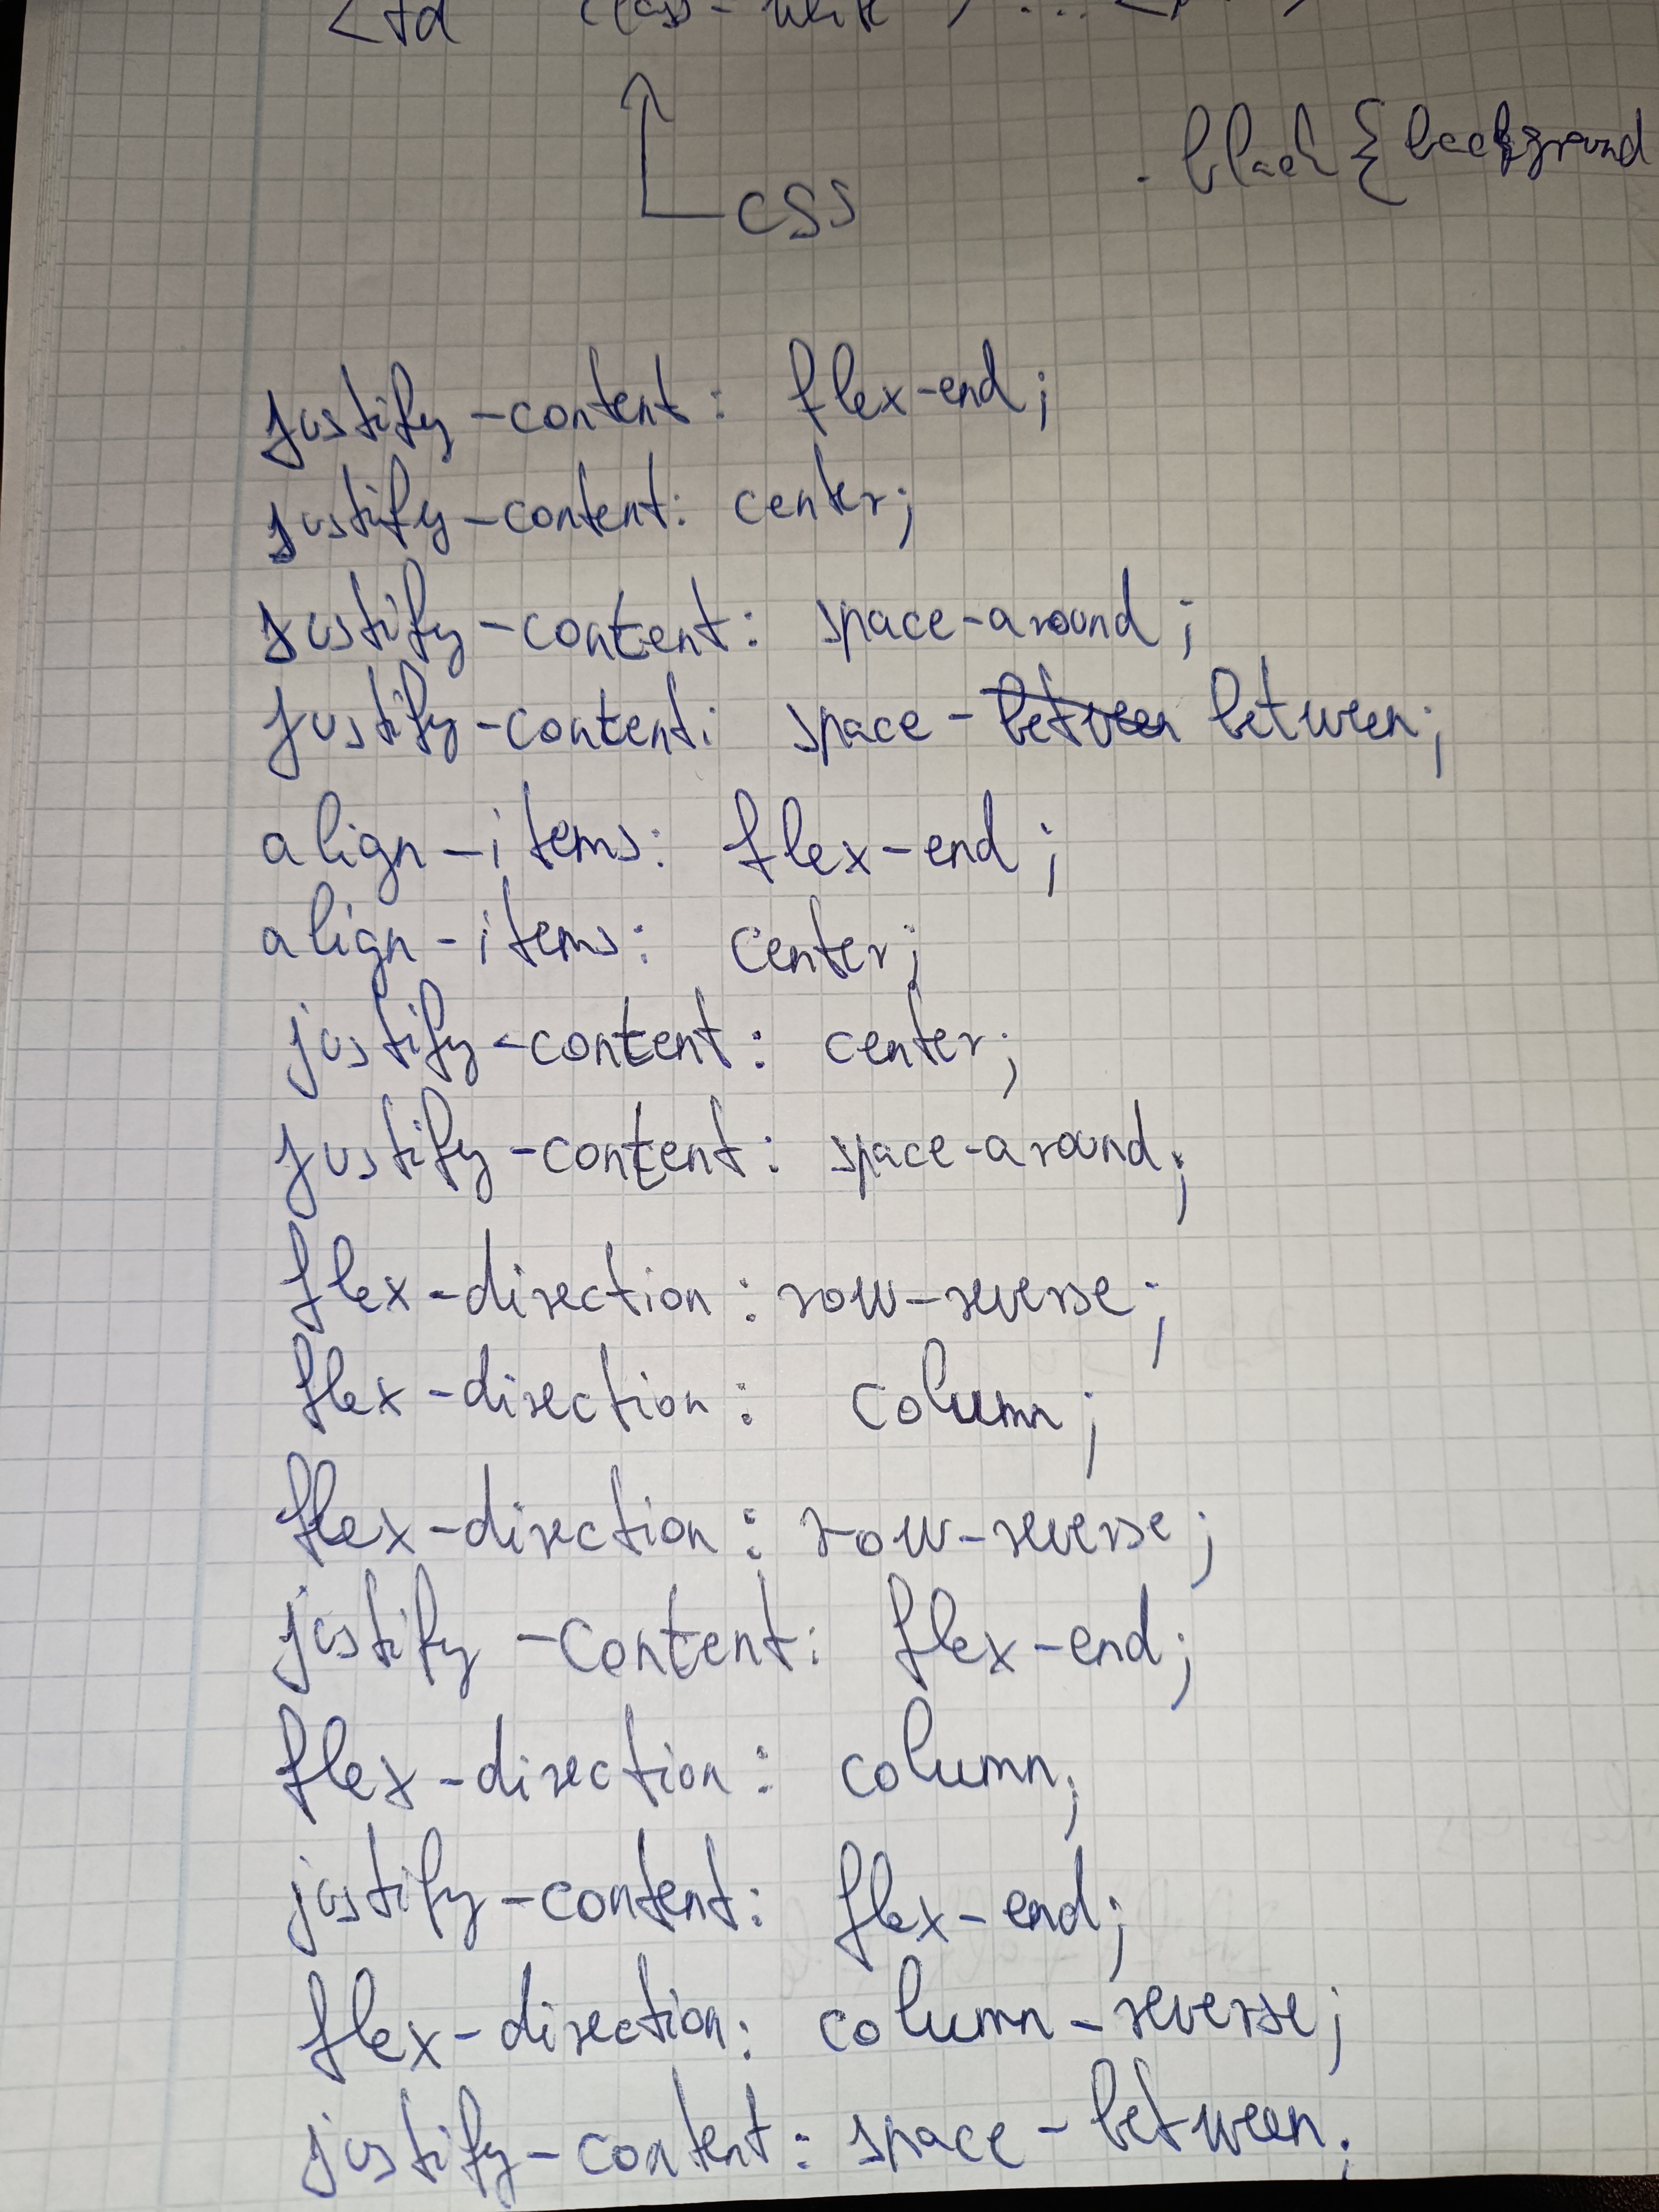 <td class=
css
.black{background
justify-content: flex-end;
justify-content: center;
justify-content: space-around;
justify-content: space-between between;
align-items: flex-end;
align-items: center;
justify-content: center;
justify-content: space-around;
flex-direction: row-reverse;
flex-direction: column;
flex-direction: row-reverse;
justify-content: flex-end;
flex-direction: column;
justify-content: flex-end;
flex-direction: column-reverse;
justify-content: space-between;